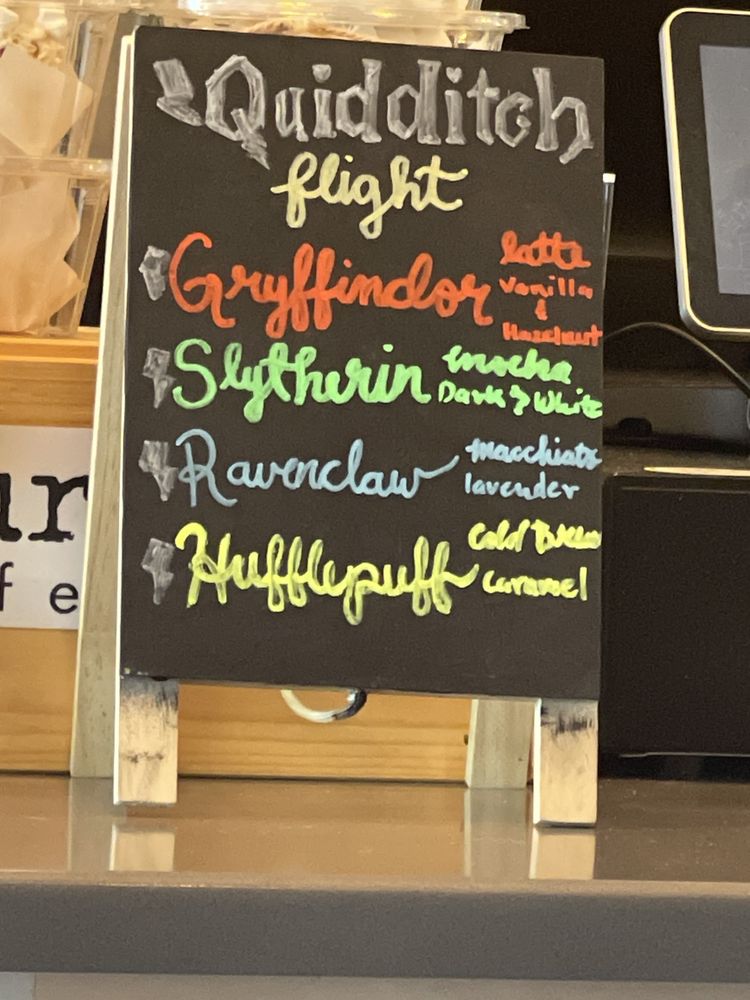 Quidditch
flight
Gryffindor
latte
Vanilla
&
Hazelnut
Slytherin
mocha
Dark & White
Ravenclaw
macchiato
lavender
Hufflepuff
Cold Brew
caramel
ur
f e